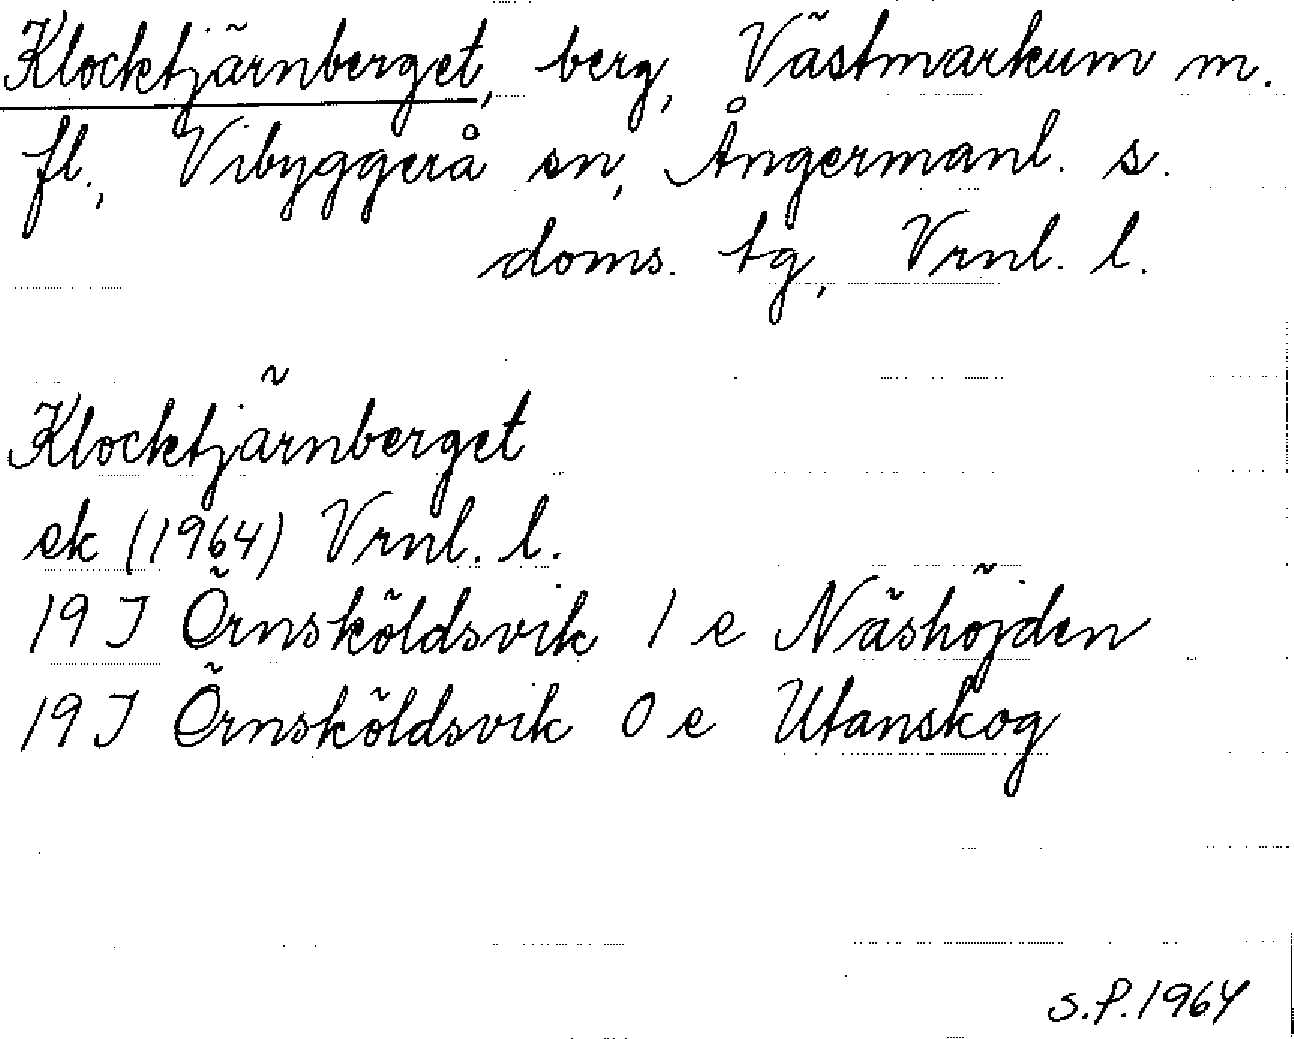 Klocktjärnberget, berg, Västmarkum m.
fl., Vibyggerå sn, Ångermanl. s.
doms. tg, Vrnl. l.
Klocktjärnberget
ek (1964) Vrnl. l.
19 J Örnsköldsvik 1 e Näshöjden
19 J Örnsköldsvik 0 e Utanskog
S.P. 1964